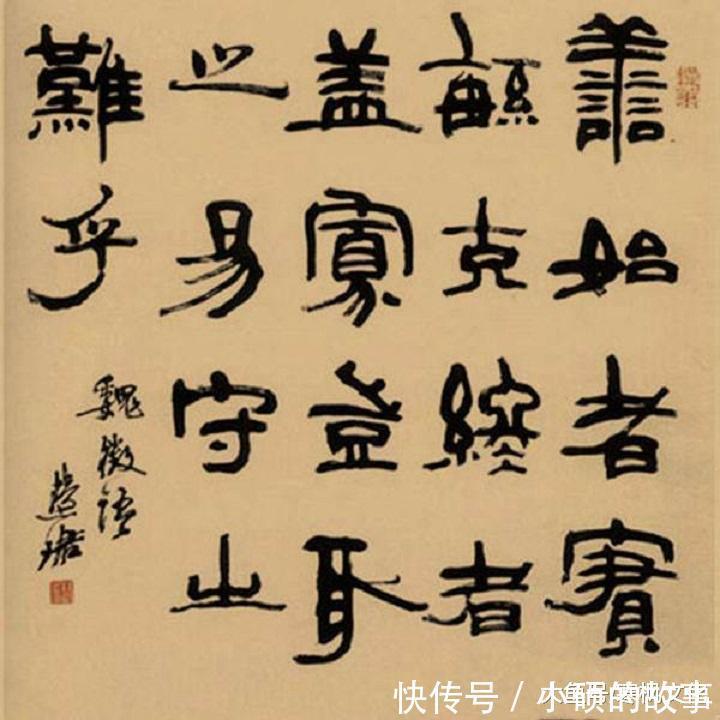 善始者實
緐克終者
盖寡豈取
之易守之
難乎
魏徵語
慧珺
快传号 / 小硕的故事